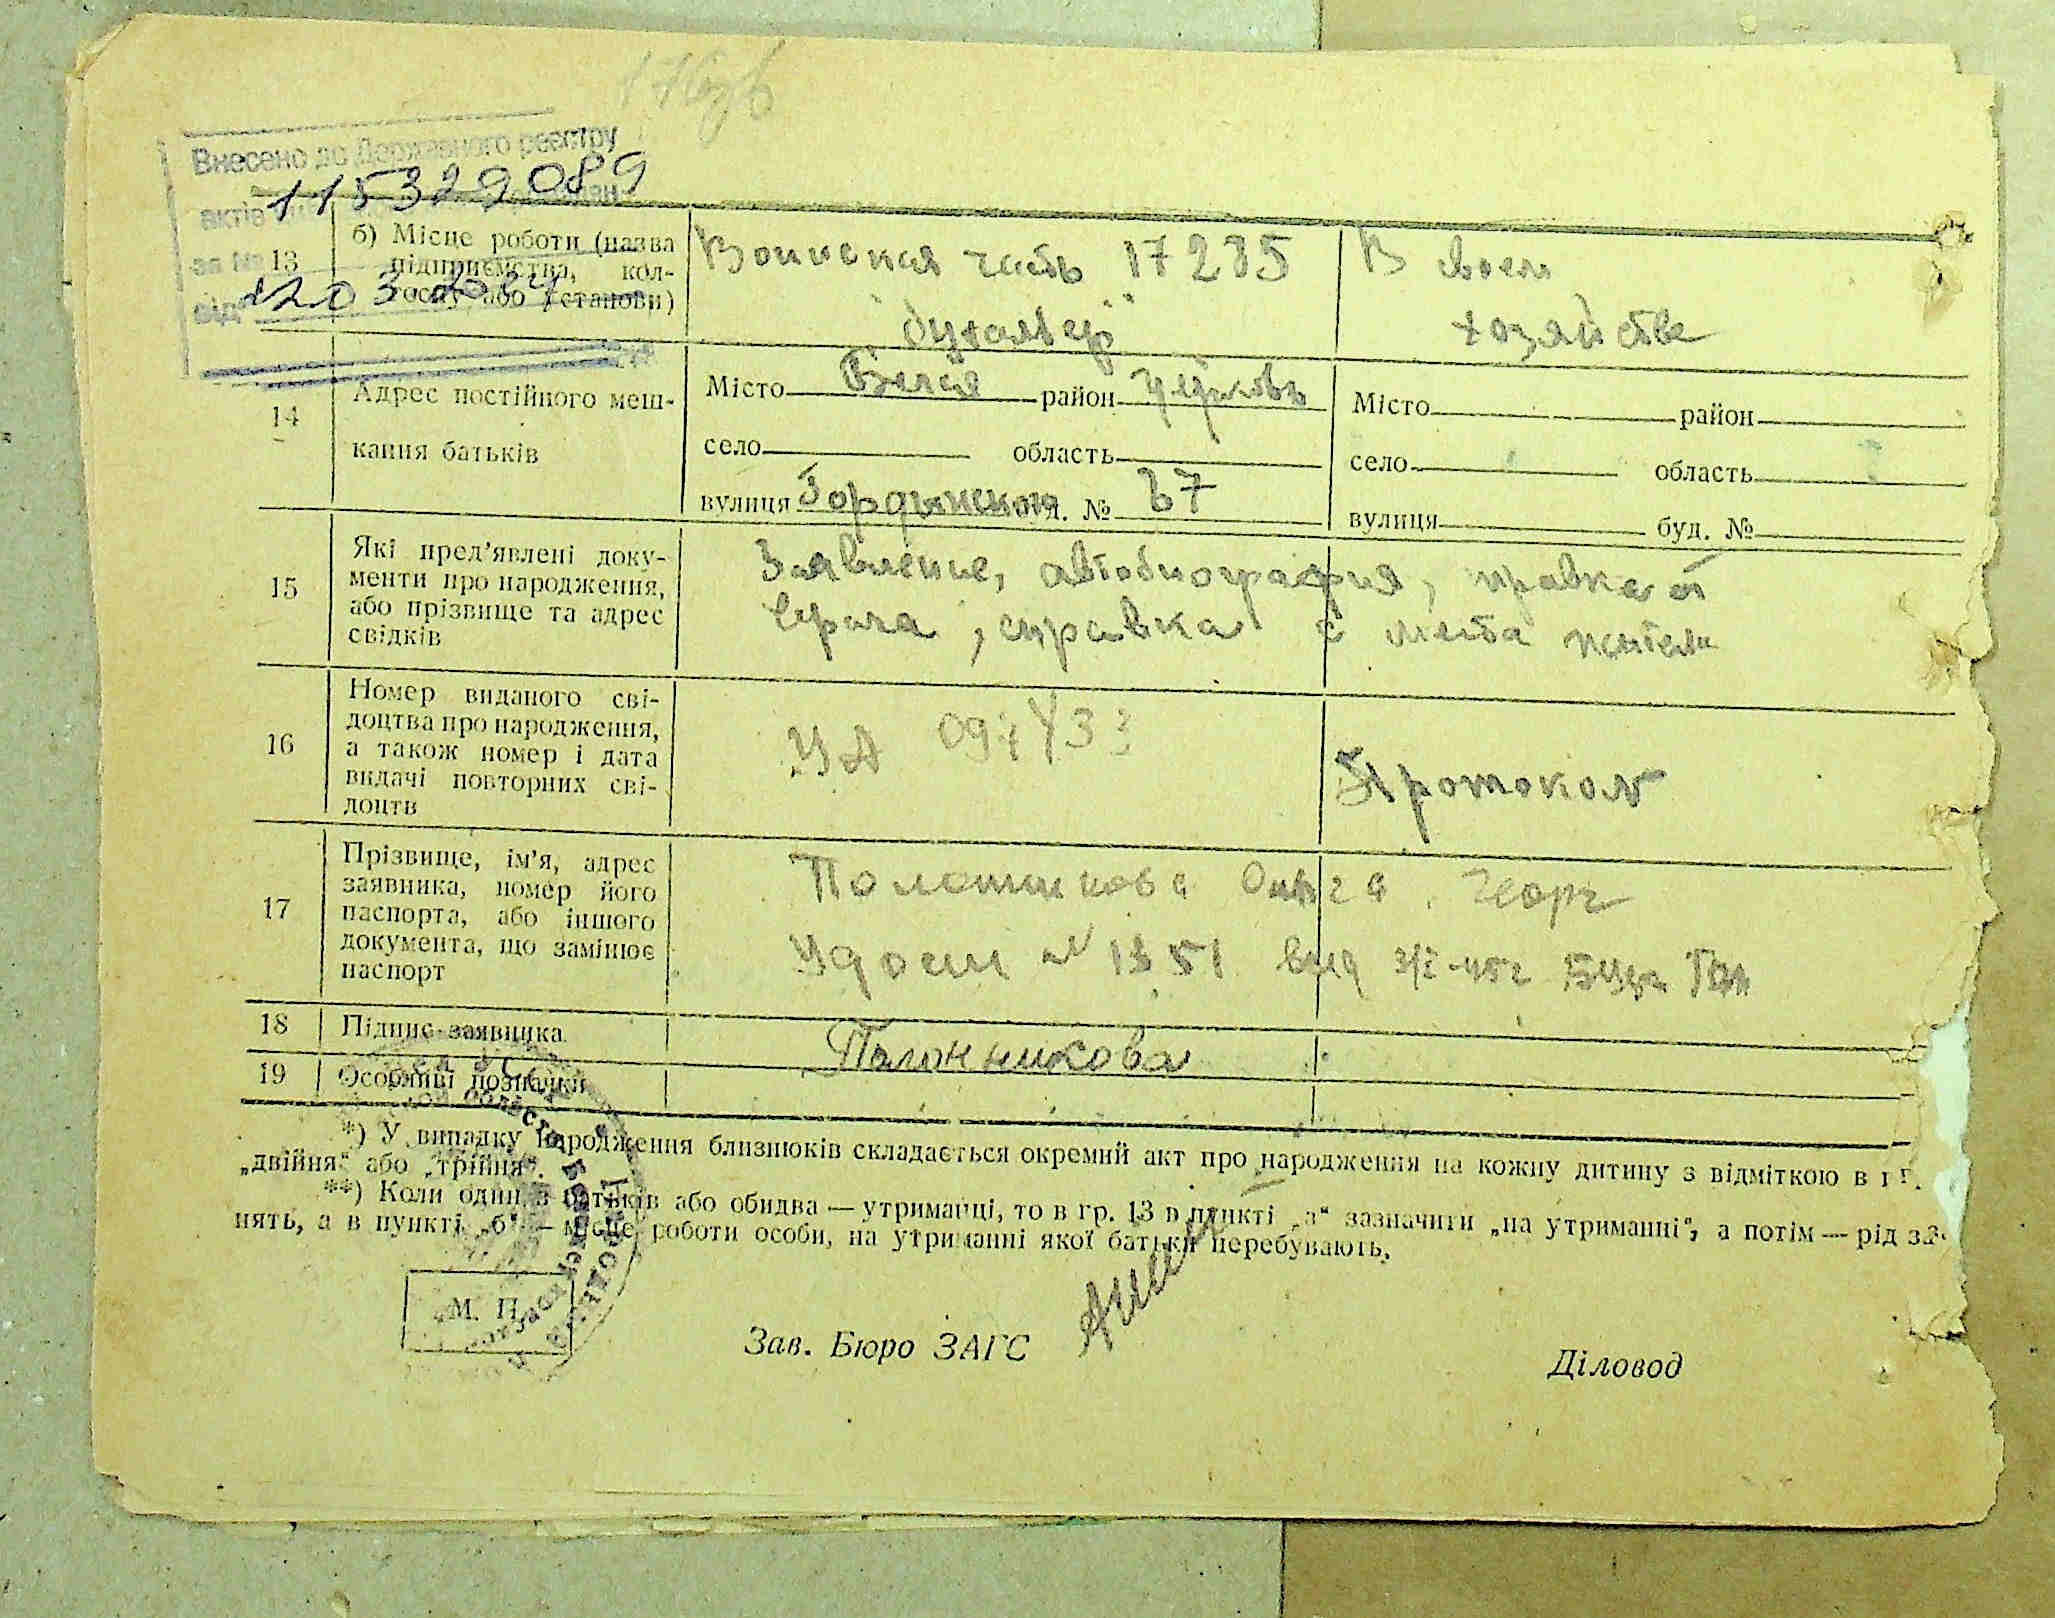 Внесено до Державного реєстру
115329089
актів
за №
від 12 03 2014
13
б) Місце роботи (назва
підприємства, кол-
госпу або установи)
Воинская часть 17235
"бухгалтер"
В своем
хозяйстве
14
Адрес постійного меш-
кання батьків
Місто Белая район Церковь
село область
вулиця Гордынская № 67
Місто район
село область
вулиця буд. №
15
Які пред’явлені доку-
менти про народження,
або прізвище та адрес
свідків
Заявление, автобиография, справка от
врача, справка с места жител
16
Номер виданого сві-
доцтва про народження,
а також номер і дата
видачі повторних сві-
доцтв
УА
Протокол
17
Прізвище, ім’я, адрес
заявника, номер його
паспорта, або іншого
документа, що замінює
паспорт
Полотникова Ольга Георг
Удост № 1351 выд
18
Підпис заявника
Полонникова
19
Особливі позначки
*) У випадку народження близнюків складається окремий акт про народження на кожну дитину з відміткою в г
„двійня“ або „трійня“.
**) Коли один з батьків або обидва — утриманці, то в гр. 13 в пункті „а“ зазначити „на утриманні“, а потім — рід за-
нять, а в пункті „б“ — місце роботи особи, на утриманні якої батьки перебувають.
М. П.
Зав. Бюро ЗАГС
Діловод